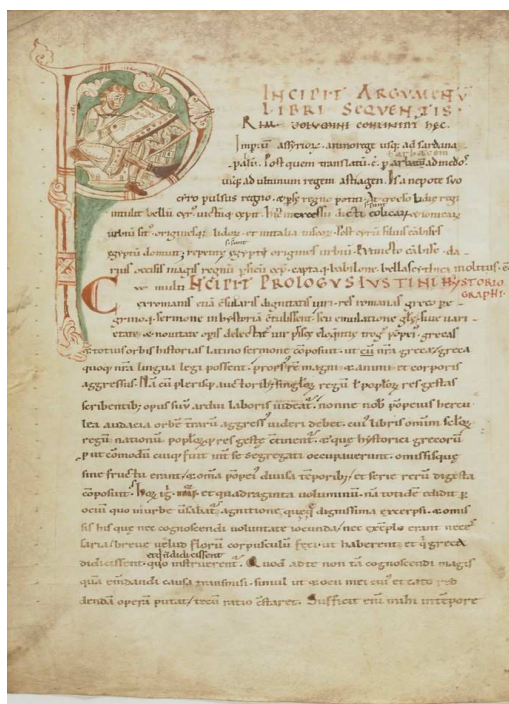 INCIPIT ARGUMENTU
LIBRI SEQUENTIS.
PRIMI VOLUMINI CONTINENT HEC.
Imperiu assyrior. a nino rege usq; ad sardana
palu. Post quem translatu. e. p arbacem ad medos
usq; ad ultimum regem astiagen. Is a nepote suo
cyro pulsus regno. & pse regno potiti. Ut creso lidie regi
intulit bellu cyr' victuq; cepit. Hic in excessu dicti eolicar. & ionicar.
urbiu sit'. origines q; lidor. et in italia tuscor. Post cyru filius cabises
egyptu domuit; repetite egypti origines urbiu. Punito cabise. da
rius occisis magis regnu psicu cep. capta q; babilone. bella scithica molitus. e
INCIPIT PROLOGUS IUSTINI HYSTORIO
GRAPHI.
Cu multi
ex romanis etia c̄sularis dignitatis uiri. res romanas greco pe
grino q; sermone in hystoria c̄tulissent. seu emulatione glorie siue uari
etate & nouitate opis delectat' uir prisce eloquentie trog' popei'. grecas
& totius orbis historias latino sermone c̄posuit. ut cu nra grece/greca
quoq; nra lingua legi possent. prorsus re magni & animi et corporis
aggressus. Na cu plerisq; auctorib; singlor. regu t' poplor. res gestas
scribentib; opus suu ardui laboris uideat'. nonne nob popeius hercu
lea audacia orbe terraru aggress' uideri debet. cui' libris omniu seclor.
regu nationu poplor. q; res geste c̄tinent'. & que hystorici grecoru
p ut comodu cuiq; fuit int se segregati occupauerunt. omissisq;
sine fructu erant/ & oma popei' diuisa teporib;/ et serie reru digesta
c̄posuit. Hor. ig. et quadraginta uoluminu. na totide edidit p
ociu quo in urbe uersabat'. cognitione queq; dignissima excerpsi. & omis
sis his que nec cognoscendi uoluntate iocunda/ nec exeplo erant nece
saria/ breue uelud floru corpusculu feci. ut haberent. et q' greca
et q' n didicissent
didicissent. quo instruerent'. Quod ad te non ta cognoscendi magis
qua emdandi causa transmisi. simul ut & ocii mei cui' et cato red
denda opera putat/ tecu ratio c̄staret. Sufficit eni mihi in tepore